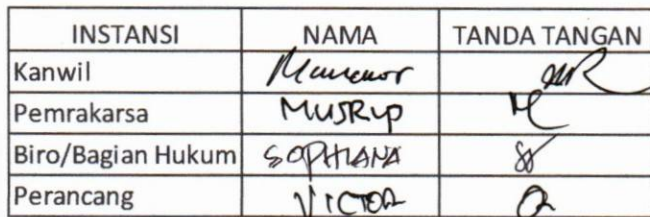 INSTANSI NAMA TANDA TANGAN
Kanwil
Pemrakarsa MUSRIP
Biro/Bagian Hukum SOPHIANA
Perancang VICTOR